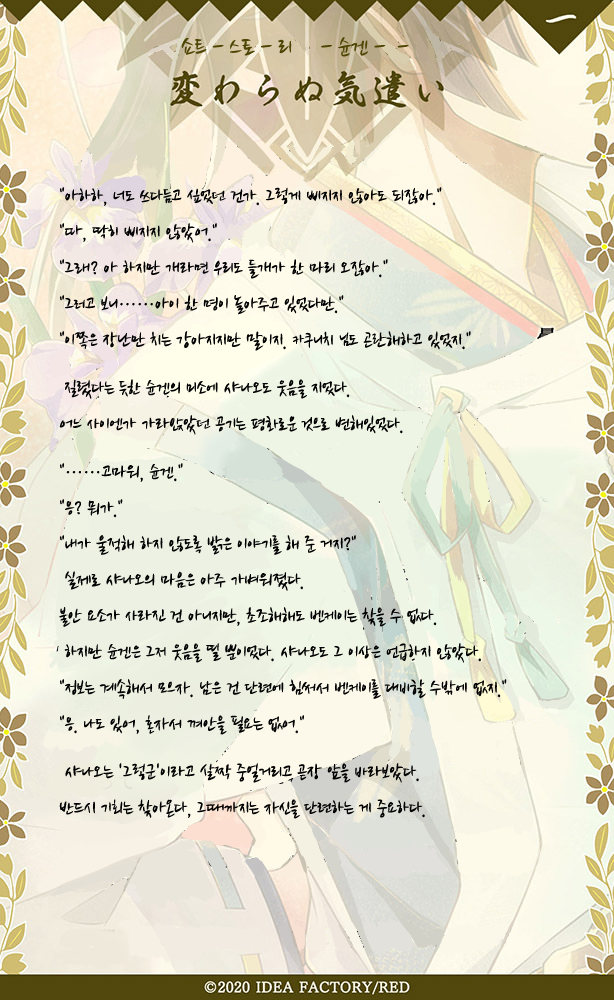 一
쇼트-스토-리 -슌겐- -
変わらぬ気遣い
"아하하, 너도 쓰다듬고 싶었던 건가. 그렇게 삐지지 않아도 되잖아."
"따, 딱히 삐지지 않았어."
"그래? 아 하지만 개라면 우리도 들개가 한 마리 오잖아."
"그러고 보니……아이 한 명이 놀아주고 있었다만."
"이쪽은 장난만 치는 강아지지만 말이지. 카쿠니치 님도 곤란해하고 있었지."
질렸다는 듯한 슌겐의 미소에 샤나오도 웃음을 지었다.
어느 사이엔가 가라앉았던 공기는 평화로운 것으로 변해있었다.
"……고마워, 슌겐."
"응? 뭐가."
"내가 울적해 하지 않도록 밝은 이야기를 해 준 거지?"
실제로 샤나오의 마음은 아주 가벼워졌다.
불안 요소가 사라진 건 아니지만, 초조해해도 벤케이는 찾을 수 없다.
하지만 슌겐은 그저 웃음을 띨 뿐이었다. 샤나오도 그 이상은 언급하지 않았다.
"정보는 계속해서 모으자. 남은 건 단련에 힘써서 벤케이를 대비할 수밖에 없지."
"응. 나도 있어, 혼자서 껴안을 필요는 없어."
샤나오는 '그렇군'이라고 살짝 중얼거리고 곧장 앞을 바라보았다.
반드시 기회는 찾아온다, 그때까지는 자신을 단련하는 게 중요하다.
©2020 IDEA FACTORY/RED